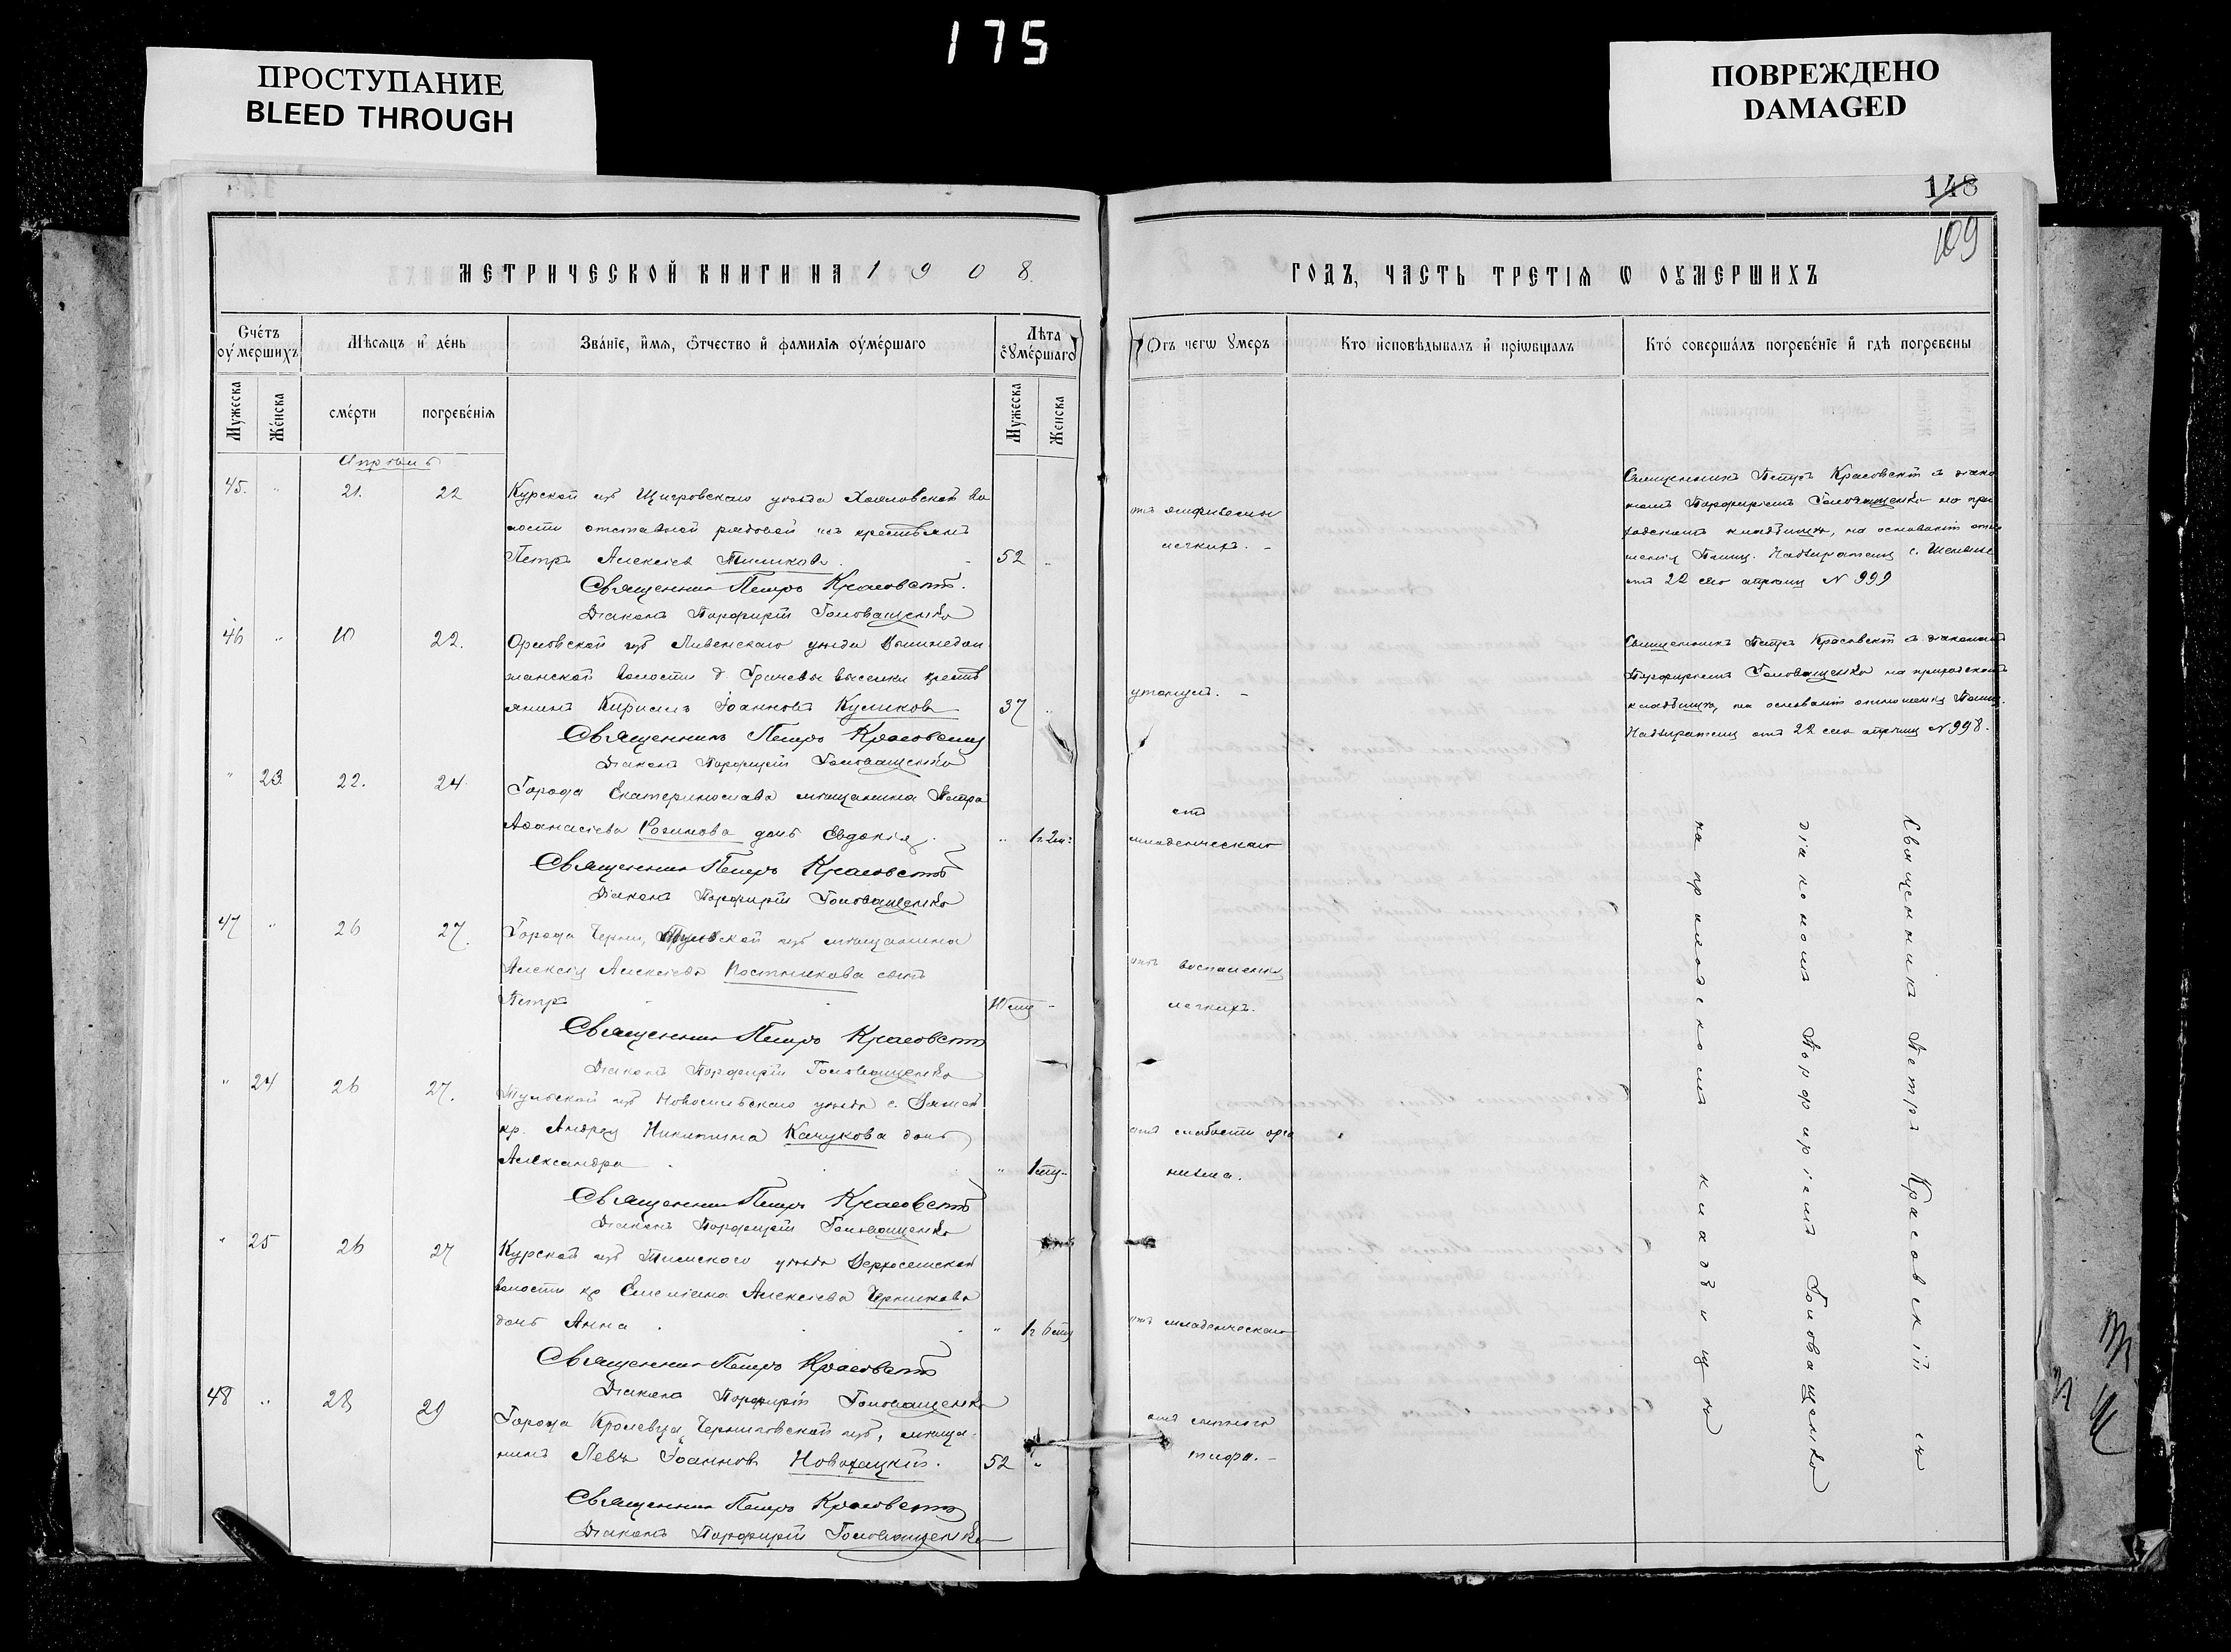 175
ПРОСТУПАНИЕ
BLEED THROUGH
ПОВРЕЖДЕНО
DAMAGED
148
109
МЕТРИЧЕСКОЙ КНИГИ НА 1908.
ГОДЪ, ЧАСТЬ ТРЕТІЯ Ѡ ОУМЕРШИХЪ
Счетъ оумершихъ
Мѣсяцъ и день
Званіе, имя, отчество и фамилія оумершаго
Лѣта оумершаго
Отъ чегѡ умеръ
Кто исповѣдывалъ и пріѡбщалъ
Кто совершалъ погребеніе и гдѣ погребены
Мужеска
Женска
смерти
погребенія
Мужеска
Женска
Апрѣль
45. " 21. 22
Курской губ Щигровскаго уѣзда во
лости отставной рядовой изъ крестьянъ
Петръ Алексѣевъ 52 "
Священникъ Петръ Красовскій.
Діаконъ Порфирій Головащенко
легкихъ.
Священникъ Петръ Красовскій съ діако
номъ Порфиріемъ Головащенко на при
ходскомъ кладбищѣ, на основаніи отно
шенія Полиц. Надзирателя
отъ 22 сего апрѣля N 999
46 " 10 22.
Орловской губ Ливенскаго уѣзда
волости д. Грачевы выселки кресть
янинъ Кириллъ Іоанновъ Куликовъ 37 "
Священникъ Петръ Красовскій
Діаконъ Порфирій Головащенко
утонулъ.
Священникъ Петръ Красовскій съ діакономъ
Порфиріемъ Головащенко на приходскомъ
кладбищѣ, на основаніи отношенія Полиц.
Надзирателя отъ 22 сего апрѣля N 998.
" 23 22. 24
Города Екатеринослава мѣщанина Петра
Аѳанасіева дочь Евдокія. " 1 г. 2 м.
Священникъ Петръ Красовскій
Діаконъ Порфирій Головащенко
отъ
младенческаго
47 " 26 27.
Города Черни, Тульской губ мѣщанина
Алексія Алексіева Постникова сынъ
Петръ
Священникъ Петръ Красовскій
Діаконъ Порфирій Головащенко
отъ воспаленія
легкихъ.
" 24 26 27.
Тульской губ Новосильскаго уѣзда с.
кр. Андрея Никитина Качукова дочь
Александра
Священникъ Петръ Красовскій
Діаконъ Порфирій Головащенко
отъ слабости орга
низма.
" 25 26 27
Курской губ Тимскаго уѣзда Верхосемской
волости кр Емеліана Алексіева Черникова
дочь Анна
Священникъ Петръ Красовскій
Діаконъ Порфирій Головащенко
отъ младенческаго
48 " 28 29
Города Кролевца, Черниговской губ, мѣща
нинъ Левъ Іоанновъ Новохацкій. 52 "
Священникъ Петръ Красовскій
Діаконъ Порфирій Головащенко
отъ
тифа.
Священникъ Петръ Красовскій съ
діакономъ Порфиріемъ Головащенко
на приходскомъ кладбищѣ